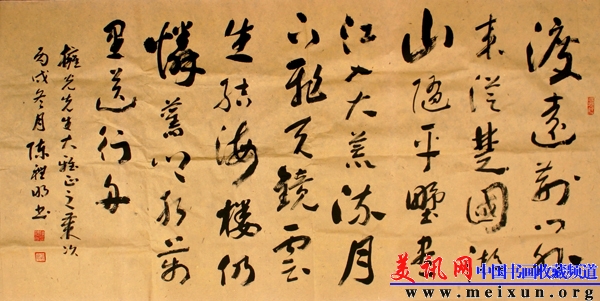 渡遠荆门外
来從楚國游
山隨平野尽
江入大荒流月
下飛天鏡雲
生結海樓仍
憐舊鄉水萬
里送行舟
光先生大雅正之歲次
丙戌冬月陈明书
美讯网 中国书画收藏频道
www.meixun.org